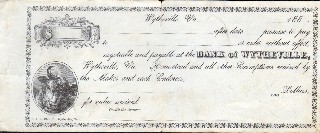 Wytheville Va. 188
after date promise to pay
to or order without offset
negotiable and payable at the BANK OF WYTHEVILLE,
Wytheville, Va. Homestead and all other Exemptions waived by
the Maker and each Endorser.
Dollars,
for value received